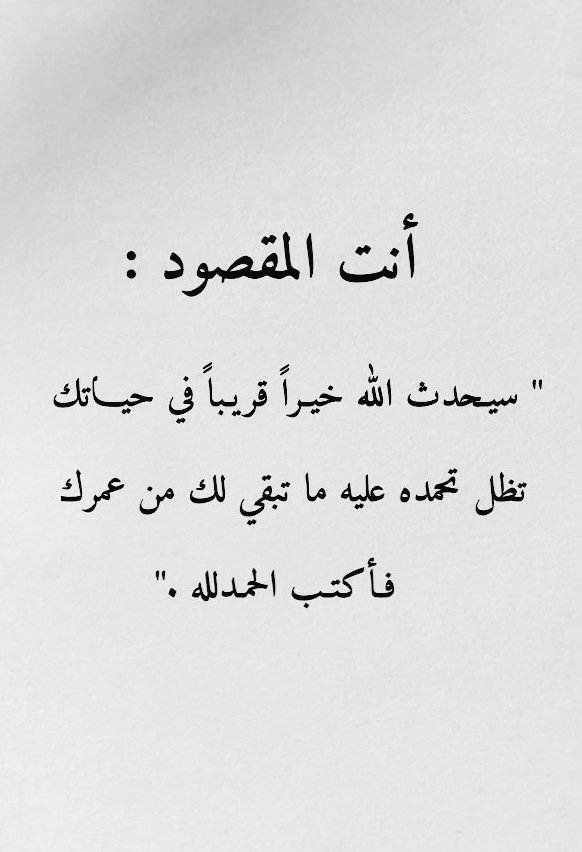 أنت المقصود :
" سيحدث الله خيراً قريباً في حياتك
تظل تحمده عليه ما تبقي لك من عمرك
فأكتب الحمدلله ."